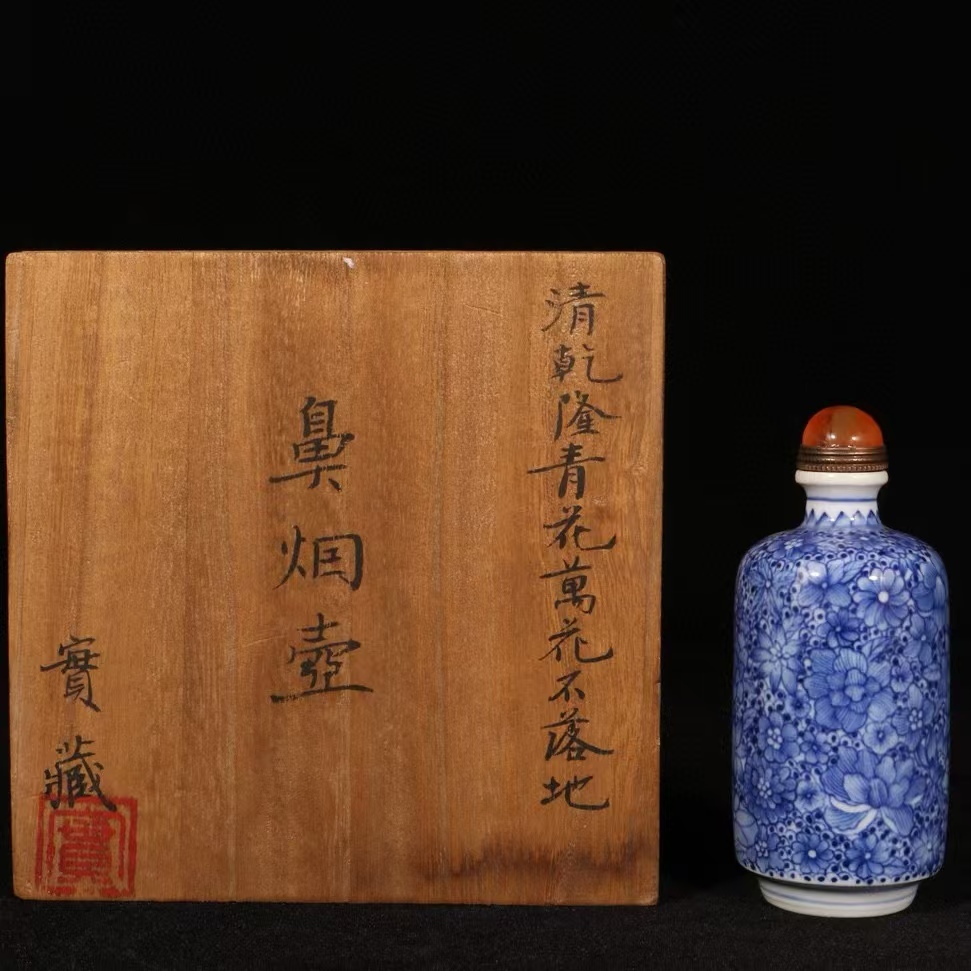 清乾隆青花萬花不落地
鼻烟壺
實藏
實